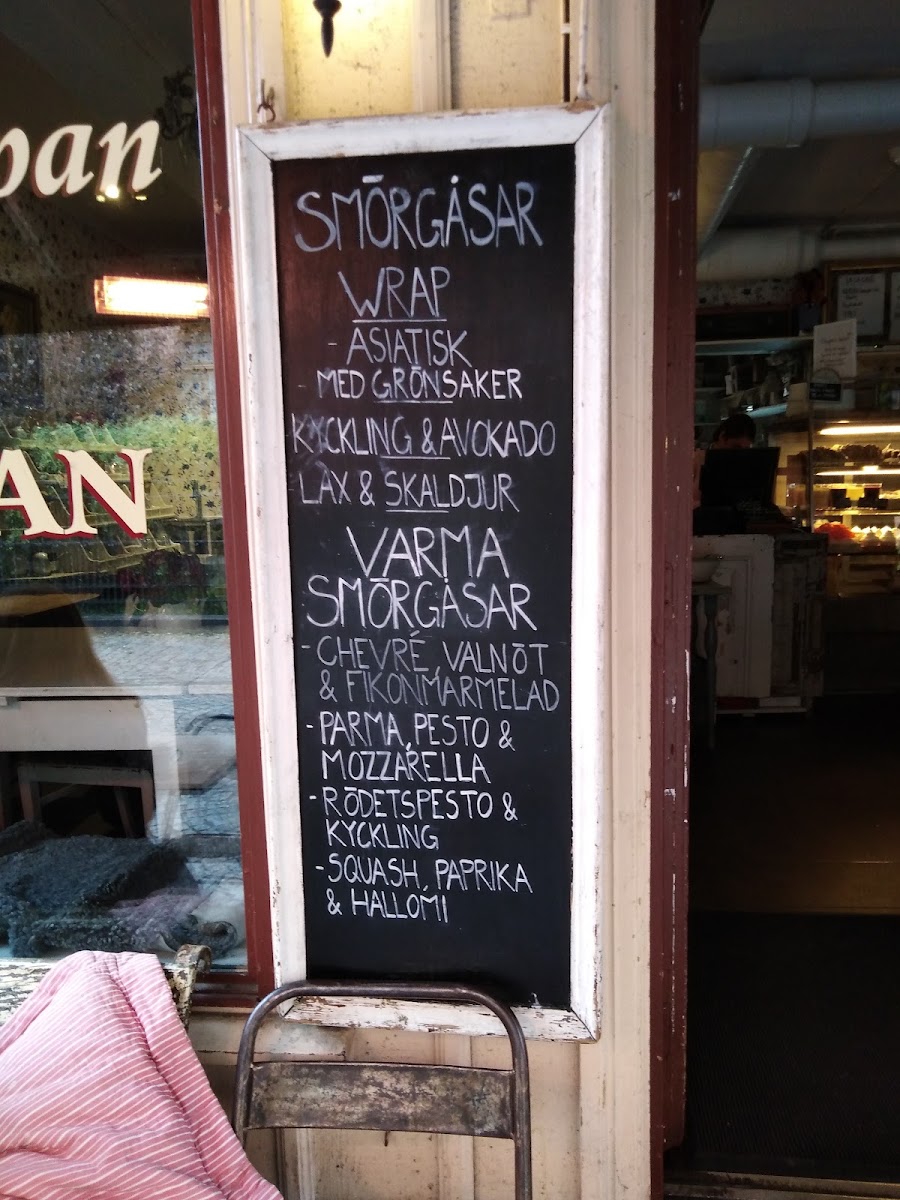 pan
AN
SMÖRGÅSAR
WRAP
- ASIATISK
MED GRÖNSAKER
KYCKLING & AVOKADO
LAX & SKALDJUR
VARMA
SMÖRGÅSAR
- CHEVRÉ, VALNÖT
& FIKONMARMELAD
- PARMA, PESTO &
MOZZARELLA
- RÖDETSPESTO &
KYCKLING
- SQUASH, PAPRIKA
& HALLOMI